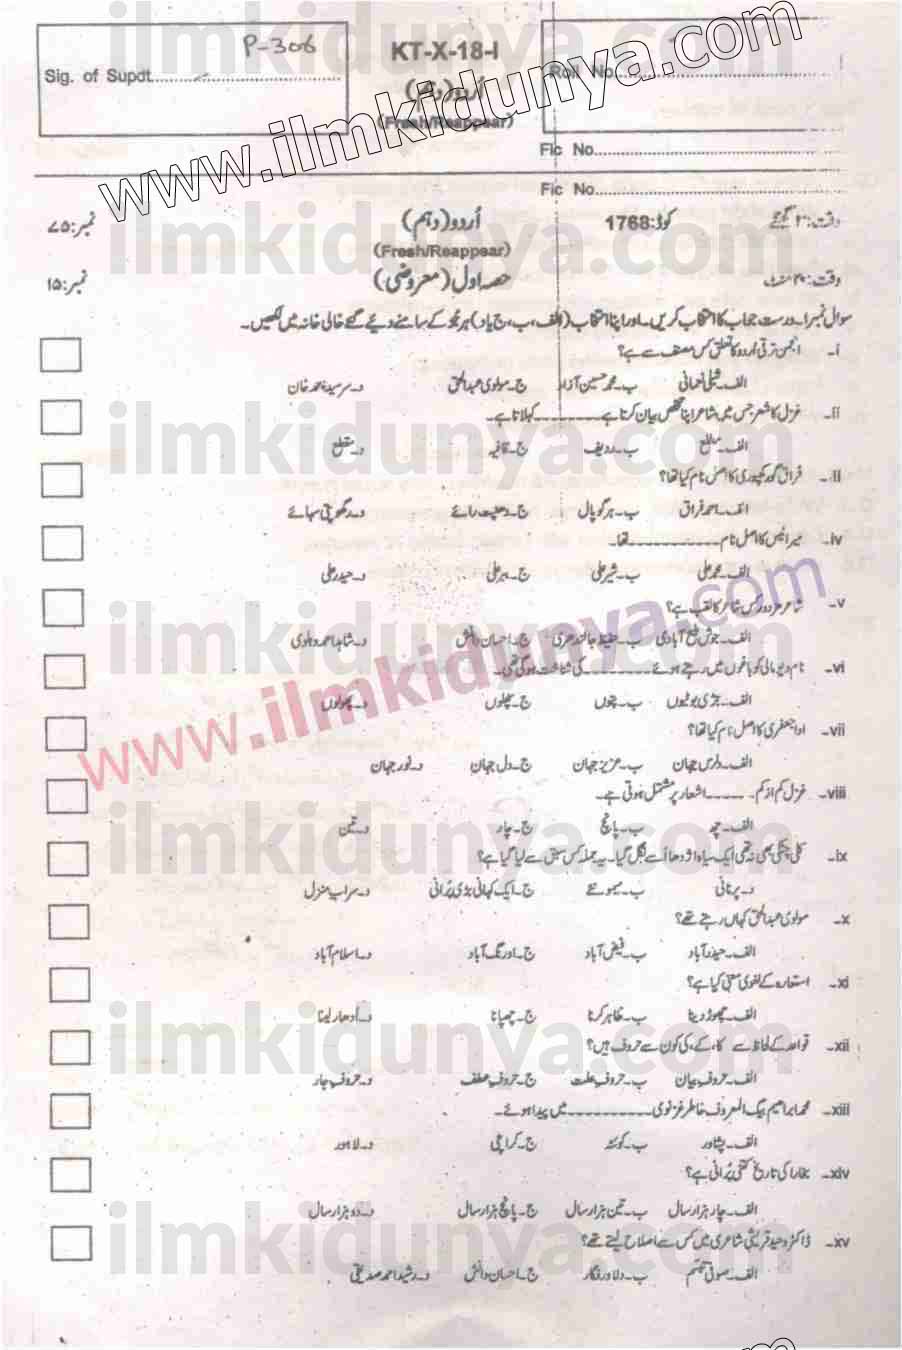 P-306
Sig. of Supdt.
KT-X-18-I
اُردو (دہم)
(Fresh/Reappear)
Roll No.
Fic No.
Fic No.
www.ilmkidunya.com
وقت: ۳ گھنٹے کوڈ: 1768 اُردو (دہم) نمبر: ۷۵
(Fresh/Reappear)
وقت: ۲۰ منٹ حصہ اول (معروضی) نمبر: ۱۵
سوال نمبر۱۔ درست جواب کا انتخاب کریں۔ اور اپنا انتخاب (الف، ب، ج یا د) ہر جُز کے سامنے دیئے گئے خالی خانہ میں لکھیں۔
i۔ انجمن ترقی اُردو کا تعلق کس مصنف سے ہے؟
الف۔ شبلی نعمانی ب۔ محمد حسین آزاد ج۔ مولوی عبدالحق د۔ سرسید احمد خان
ii۔ غزل کا شعر جس میں شاعر اپنا تخلص بیان کرتا ہے ---------- کہلاتا ہے۔
الف۔ مطلع ب۔ ردیف ج۔ قافیہ د۔ مقطع
ii۔ فراق گورکھپوری کا اصل نام کیا تھا؟
الف۔ احمد فراق ب۔ ہرگوپال ج۔ دھنپت رائے د۔ رگھوپتی سہائے
iv۔ میر انیس کا اصل نام ---------- تھا۔
الف۔ محمد علی ب۔ شیر علی ج۔ ببر علی د۔ حیدر علی
v۔ شاعر مزدور کس شاعر کا لقب ہے؟
الف۔ جوش ملیح آبادی ب۔ حفیظ جالندھری ج۔ احسان دانش د۔ شاہد احمد دہلوی
vi۔ نام دیو مالی کو باغوں میں رہتے ہوئے ---------- کی شناخت ہوگئی تھی۔
الف۔ جڑی بوٹیوں ب۔ پتوں ج۔ پھلوں د۔ پھولوں
vii۔ ادا جعفری کا اصل نام کیا تھا؟
الف۔ جہان ب۔ عزیز جہان ج۔ دل جہان د۔ نور جہان
viii۔ غزل کم از کم ------ اشعار پر مشتمل ہوتی ہے۔
الف۔ چھ ب۔ پانچ ج۔ چار د۔ تین
ix۔ کلی چٹکی بھی نہ تھی ایک سیاہ اژدھا اُسے نگل گیا۔ یہ جملہ کس سبق سے لیا گیا ہے؟
د۔ پرنانی ب۔ ج۔ ایک کہانی بڑی پُرانی د۔ سراب منزل
x۔ مولوی عبدالحق کہاں رہتے تھے؟
الف۔ حیدرآباد ب۔ فیض آباد ج۔ اورنگ آباد د۔ اسلام آباد
xi۔ استعارہ کے لغوی معنی کیا ہے؟
الف۔ چھوڑ دینا ب۔ ظاہر کرنا ج۔ چھپانا د۔ اُدھار لینا
xii۔ قواعد کے لحاظ سے کا، کے، کی کون سے حروف ہیں؟
الف۔ حروف بیان ب۔ حروف علت ج۔ حروف عطف د۔ حروف جار
xiii۔ محمد ابراہیم بیگ المعروف خاطر غزنوی ---------- میں پیدا ہوئے۔
الف۔ پشاور ب۔ کوئٹہ ج۔ کراچی د۔ لاہور
xiv۔ بخارا کی تاریخ کتنی پُرانی ہے؟
الف۔ چار ہزار سال ب۔ تین ہزار سال ج۔ پانچ ہزار سال د۔ دو ہزار سال
xv۔ ڈاکٹر وحید قریشی شاعری میں کس سے اصلاح لیتے تھے؟
الف۔ صوفی تبسم ب۔ دلاور فگار ج۔ احسان دانش د۔ رشید احمد صدیقی